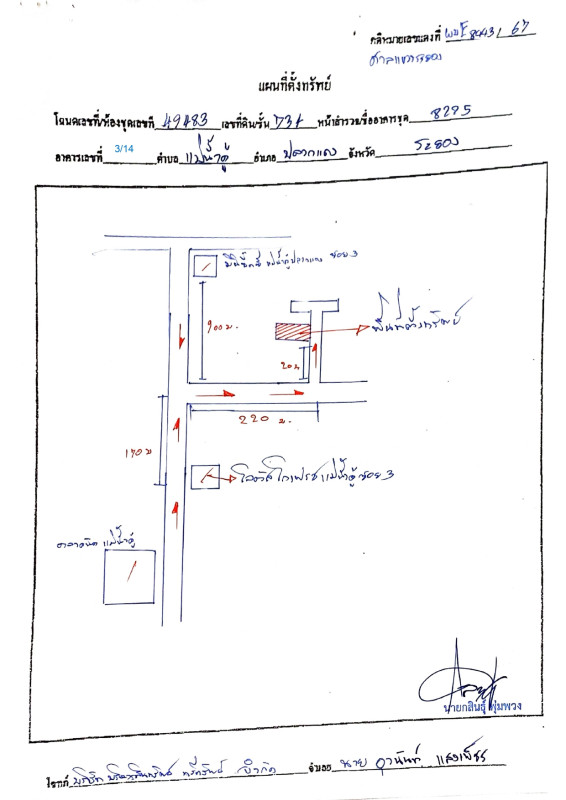 คดีหมายเลขแดงที่ ผบE 8943/67
ศาลแขวงระยอง
แผนที่ตั้งทรัพย์
โฉนดเลขที่/ห้องชุดเลขที่ 49483 เลขที่ดิน/ชั้น 734 หน้าสำรวจ/ชื่ออาคารชุด 8295
อาคารเลขที่ 3/14 ตำบล แม่น้ำคู้ อำเภอ ปลวกแดง จังหวัด ระยอง
แม่น้ำคู้ปลวกแดง ซอย 3
900 ม.
พื้นที่ตั้งทรัพย์
20 ม
220 ม.
170 ม
โลตัส โกเฟรช แม่น้ำคู้ซอย 3
ตลาดนัด แม่น้ำคู้
นายกสินธุ์ พุ่มพวง
โจทก์ บริษัท จำกัด จำเลย นาย